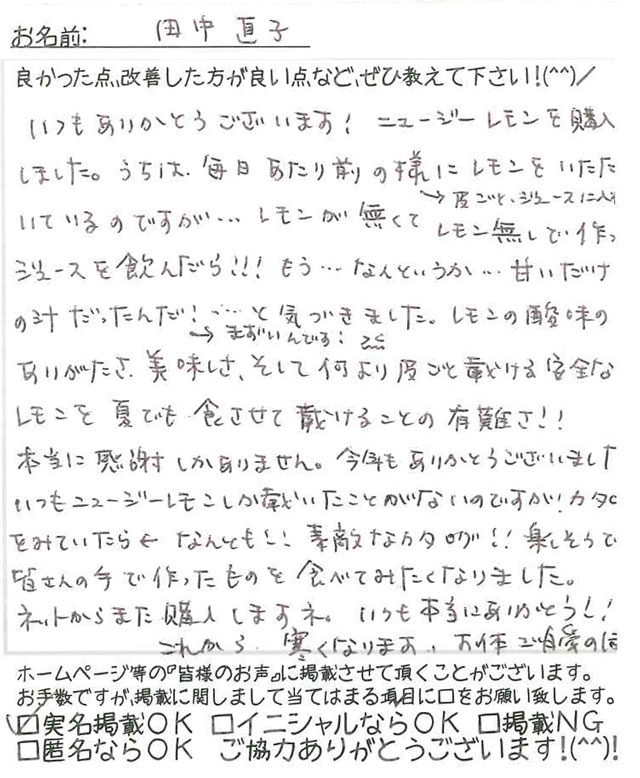 お名前: 田中 直子
良かった点、改善した方が良い点など、ぜひ教えて下さい!(^^)/
いつもありがとうございます! ニュージーレモンを購入
しました。うちは、毎日あたり前の様にレモンをいただ
→皮ごと、ジュースに入れ
いているのですが… レモンが無くて レモン無しで作っ
ジュースを飲んだら!!! もう… なんというか… 甘いだけ
の汁だったんだ! …と気づきました。レモンの酸味の
→まずいんです!
ありがたさ、美味しさ、そして何より皮ごと戴ける安全な
レモンを夏でも食させて戴けることの有難さ!!
本当に感謝しかありません。今年もありがとうございました
いつもニュージーレモンしか戴いたことがないのですが! カタロ
をみていたら← なんとも!! 素敵なカタログ!! 楽しそうで
皆さんの手で作ったものを食べてみたくなりました。
ネットからまた購入しますネ。いつも本当にありがとう!!
これから、寒くなります、お体ご自愛のほ
ホームページ等の『皆様のお声』に掲載させて頂くことがございます。
お手数ですが、掲載に関しまして当てはまる項目に□をお願い致します。
☑実名掲載OK □イニシャルならOK □掲載NG
□匿名ならOK ご協力ありがとうございます!(^^)!